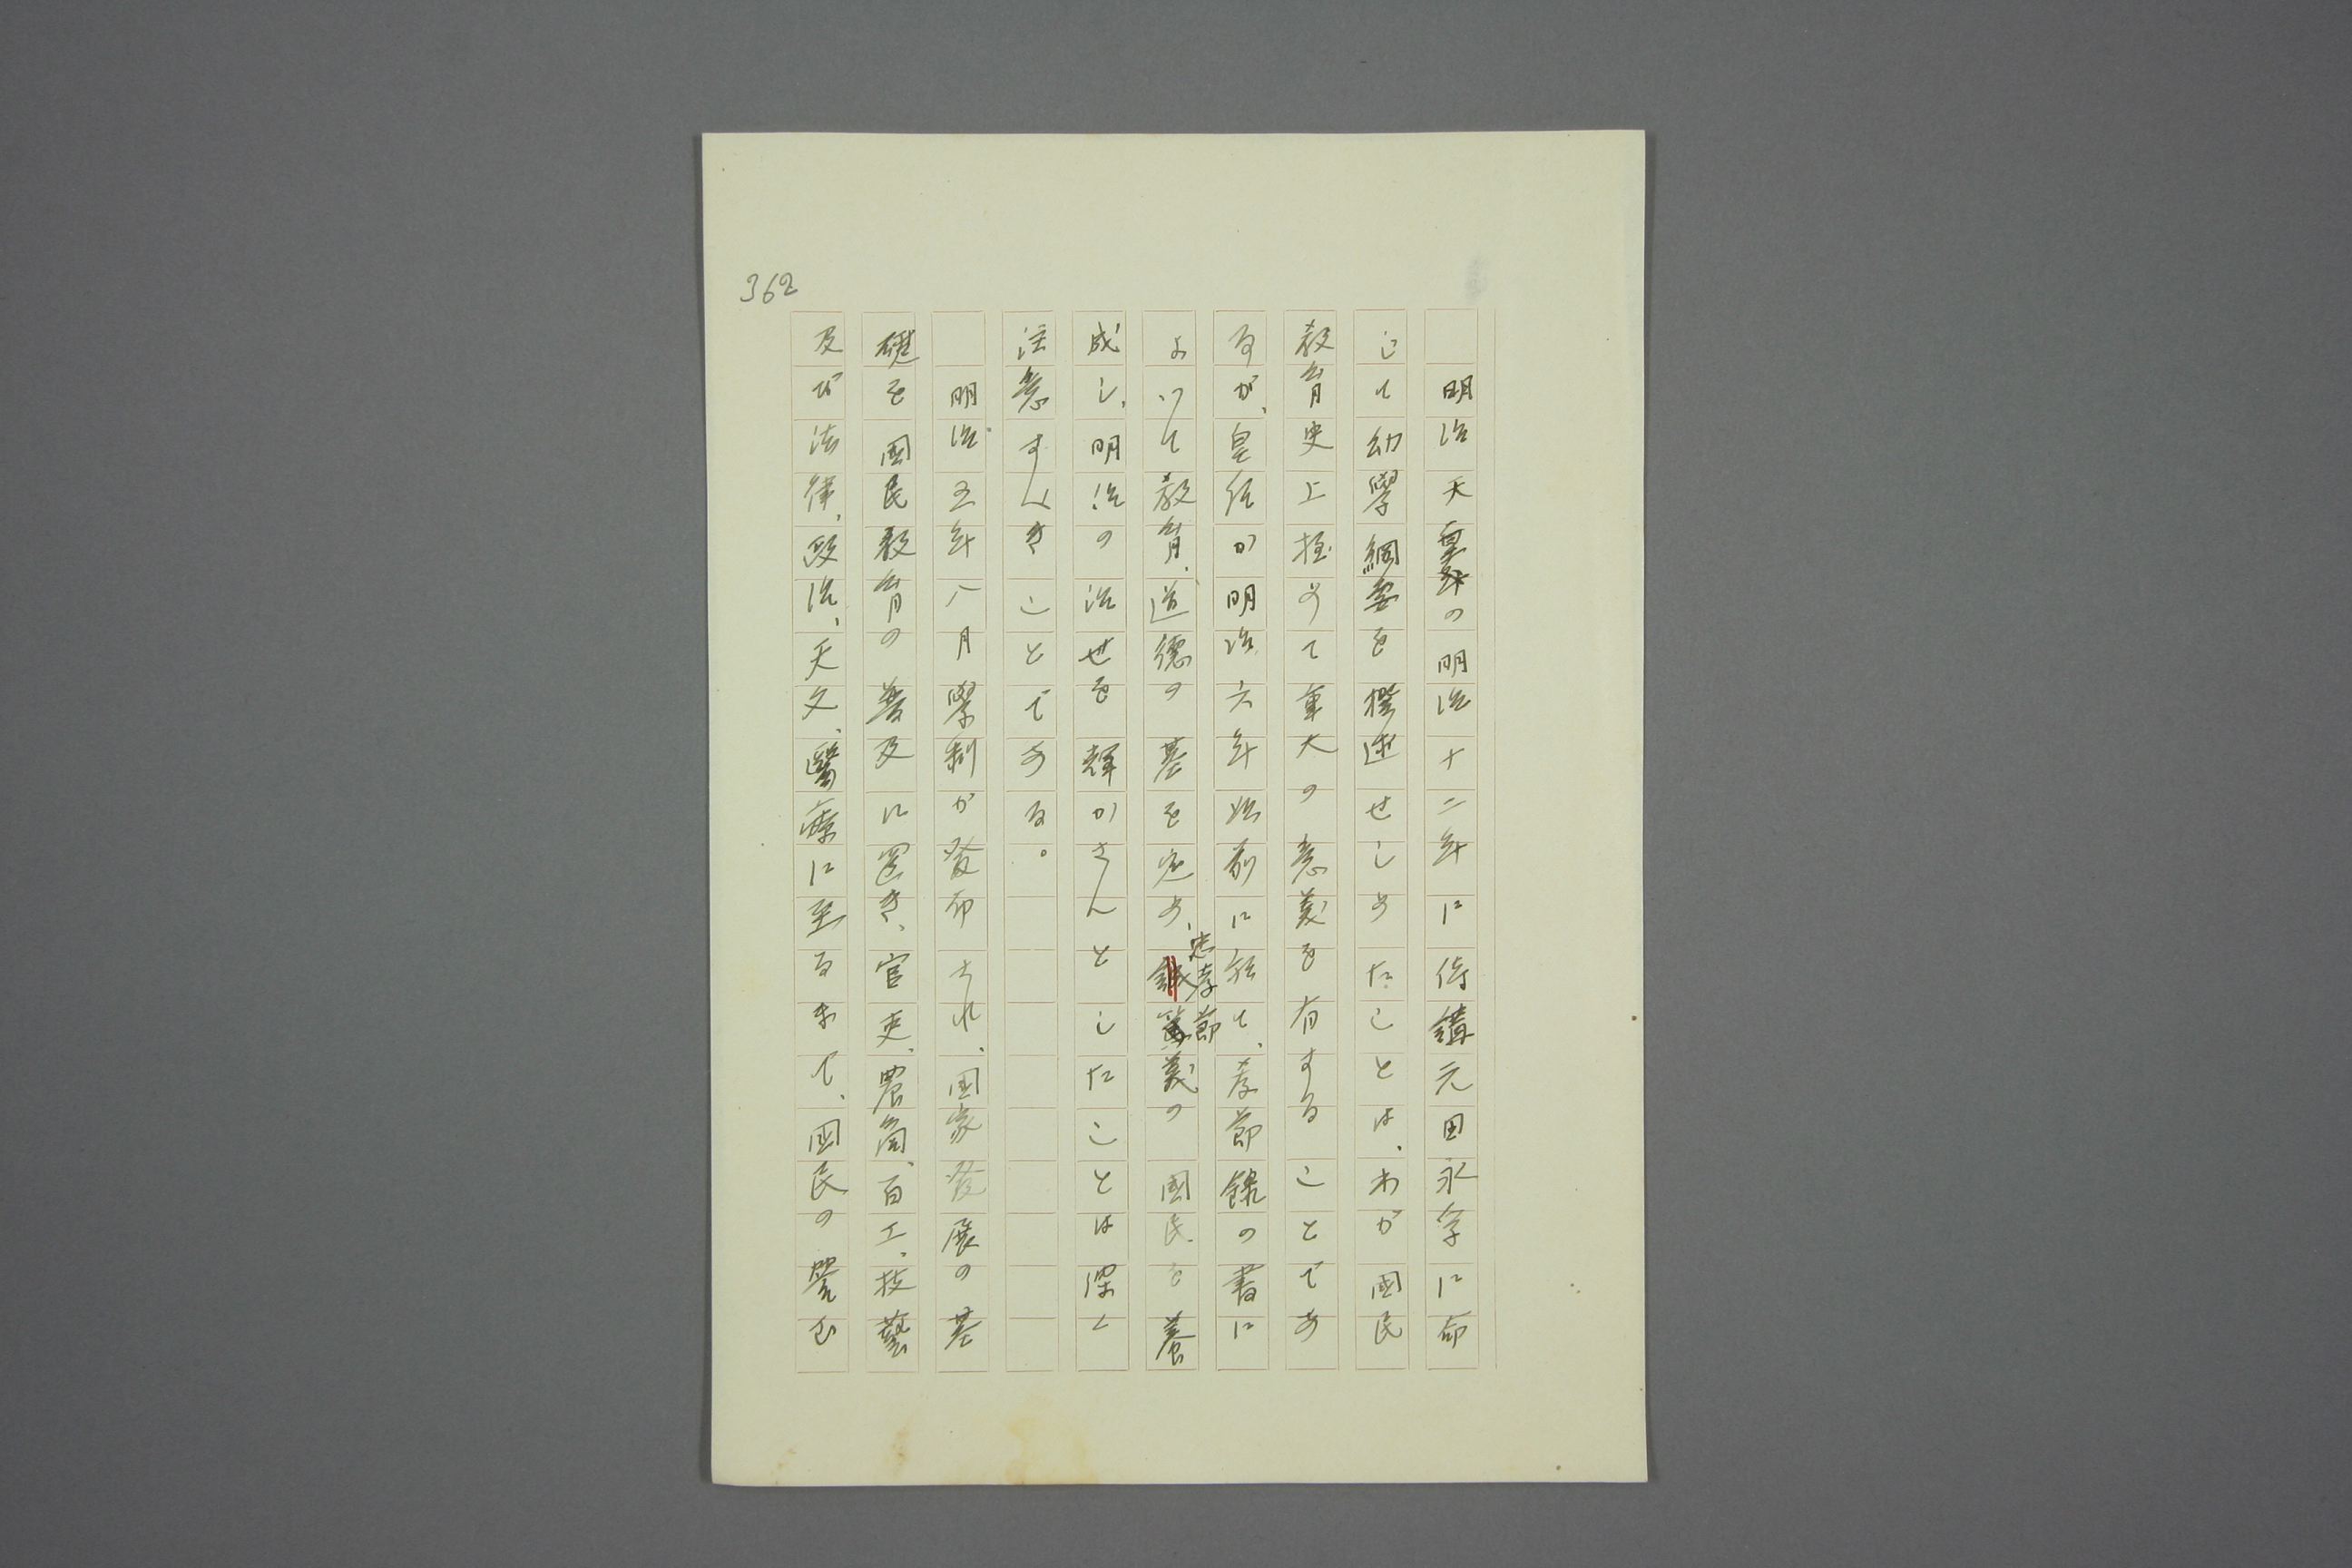 362
明治天皇の明治十二年に侍講元田永孚に命
じて幼學綱要を撰述せしめたことは、わが國民
教育史上極めて重大の意義を有することであ
るが、皇が明治六年前に於て、孝節録の書に
よつて教育、道德の基を定め、忠孝節義の國民を養
成し、明治の治世を輝かさんとしたことは深く
注意すべきことである。
明治五年八月學制が發布され、国家發展の基
礎を國民教育の普及に置き、官吏、農商、百工、技藝
及び法律、政治、天文、醫療に至るまで、國民の營む